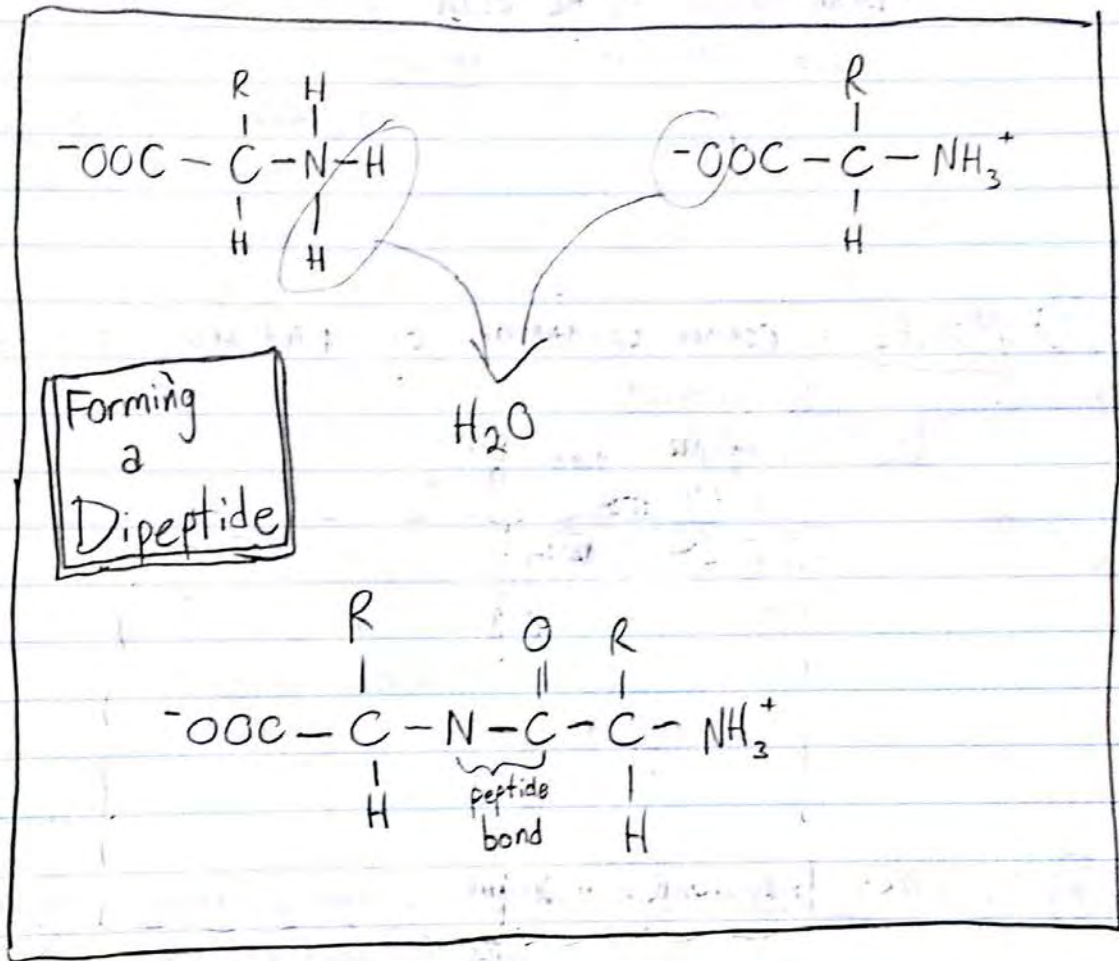 R H
⁻OOC – C – N – H
H H
R
⁻OOC – C – NH₃⁺
H
H₂O
Forming
a
Dipeptide
R O R
⁻OOC – C – N – C – C – NH₃⁺
H peptide H
bond